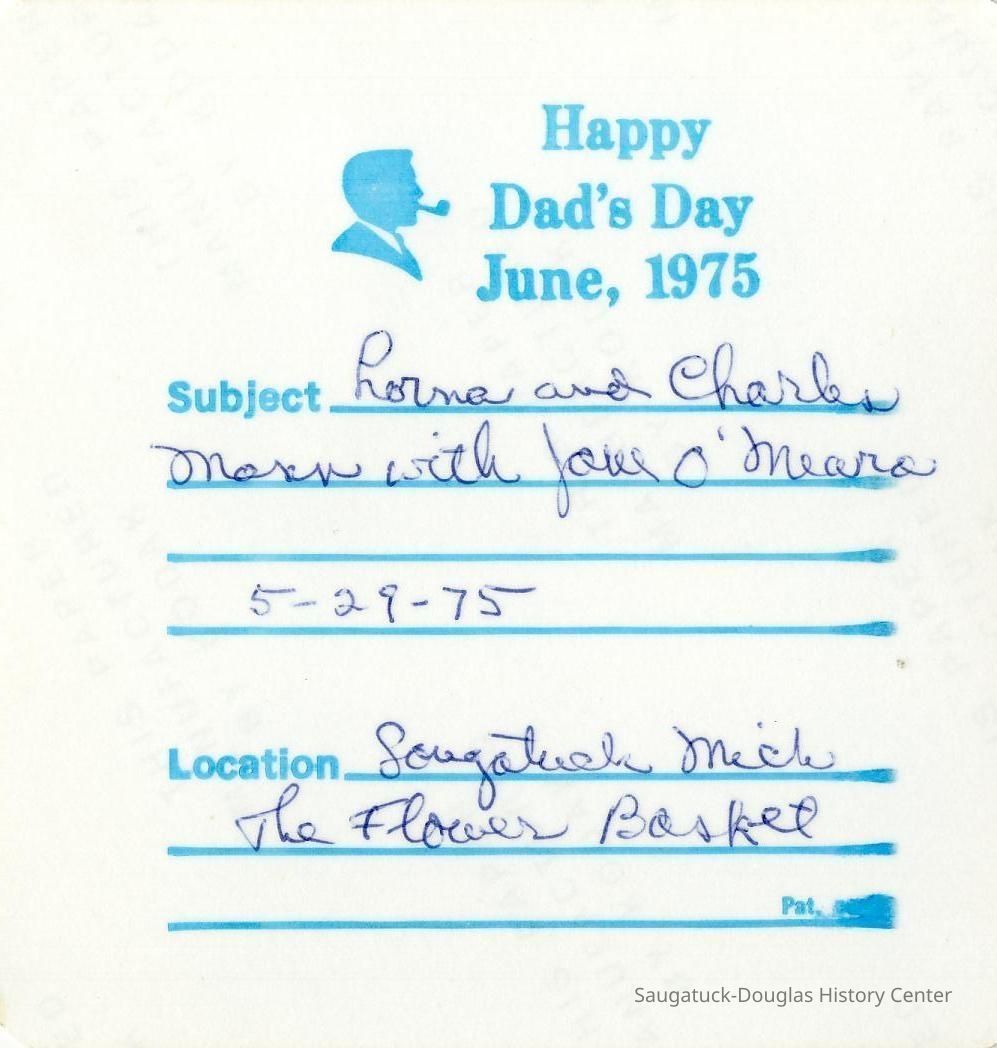 Happy
Dad's Day
June, 1975
Subject Lorna and Charles
with Jane O'Meara
5-29-75
Location Saugatuck Mich
The Flower Basket
Pat.
Saugatuck-Douglas History Center